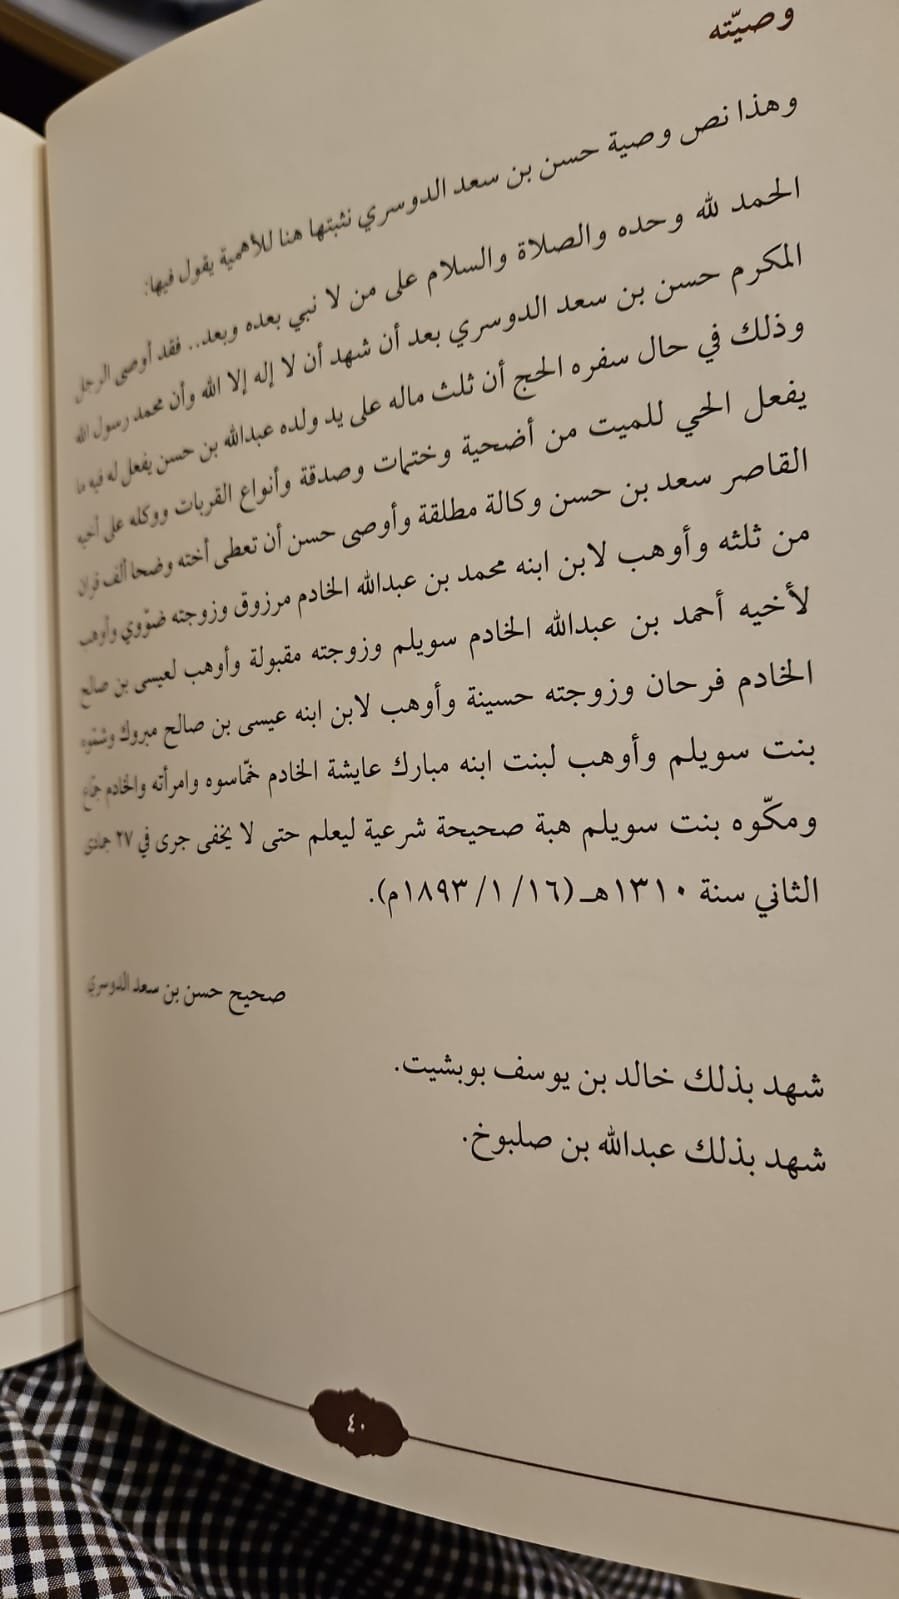 وصيّته
وهذا نص وصية حسن بن سعد الدوسري نثبتها هنا للأهمية يقول فيها:
الحمد لله وحده والصلاة والسلام على من لا نبي بعده وبعد.. فقد أوصى الرجل
المكرم حسن بن سعد الدوسري بعد أن شهد أن لا إله إلا الله وأن محمد رسول الله
وذلك في حال سفره الحج أن ثلث ماله على يد ولده عبدالله بن حسن يفعل له فيه ما
يفعل الحي للميت من أضحية وختمات وصدقة وأنواع القربات ووكله على أخيه
القاصر سعد بن حسن وكالة مطلقة وأوصى حسن أن تعطى أخته وضحا ألف قران
من ثلثه وأوهب لابن ابنه محمد بن عبدالله الخادم مرزوق وزوجته ضوّوي وأوهب
لأخيه أحمد بن عبدالله الخادم سويلم وزوجته مقبولة وأوهب لعيسى بن صالح
الخادم فرحان وزوجته حسينة وأوهب لابن ابنه عيسى بن صالح مبروك وشمّوه
بنت سويلم وأوهب لبنت ابنه مبارك عايشة الخادم خمّاسوه وامرأته والخادم جمّاع
ومكّوه بنت سويلم هبة صحيحة شرعية ليعلم حتى لا يخفى جرى في ٢٧ جمادى
الثاني سنة ١٣١٠هـ (١٦/ ١/ ١٨٩٣م).
صحيح حسن بن سعد الدوسري
شهد بذلك خالد بن يوسف بوبشيت.
شهد بذلك عبدالله بن صلبوخ.
٤٠